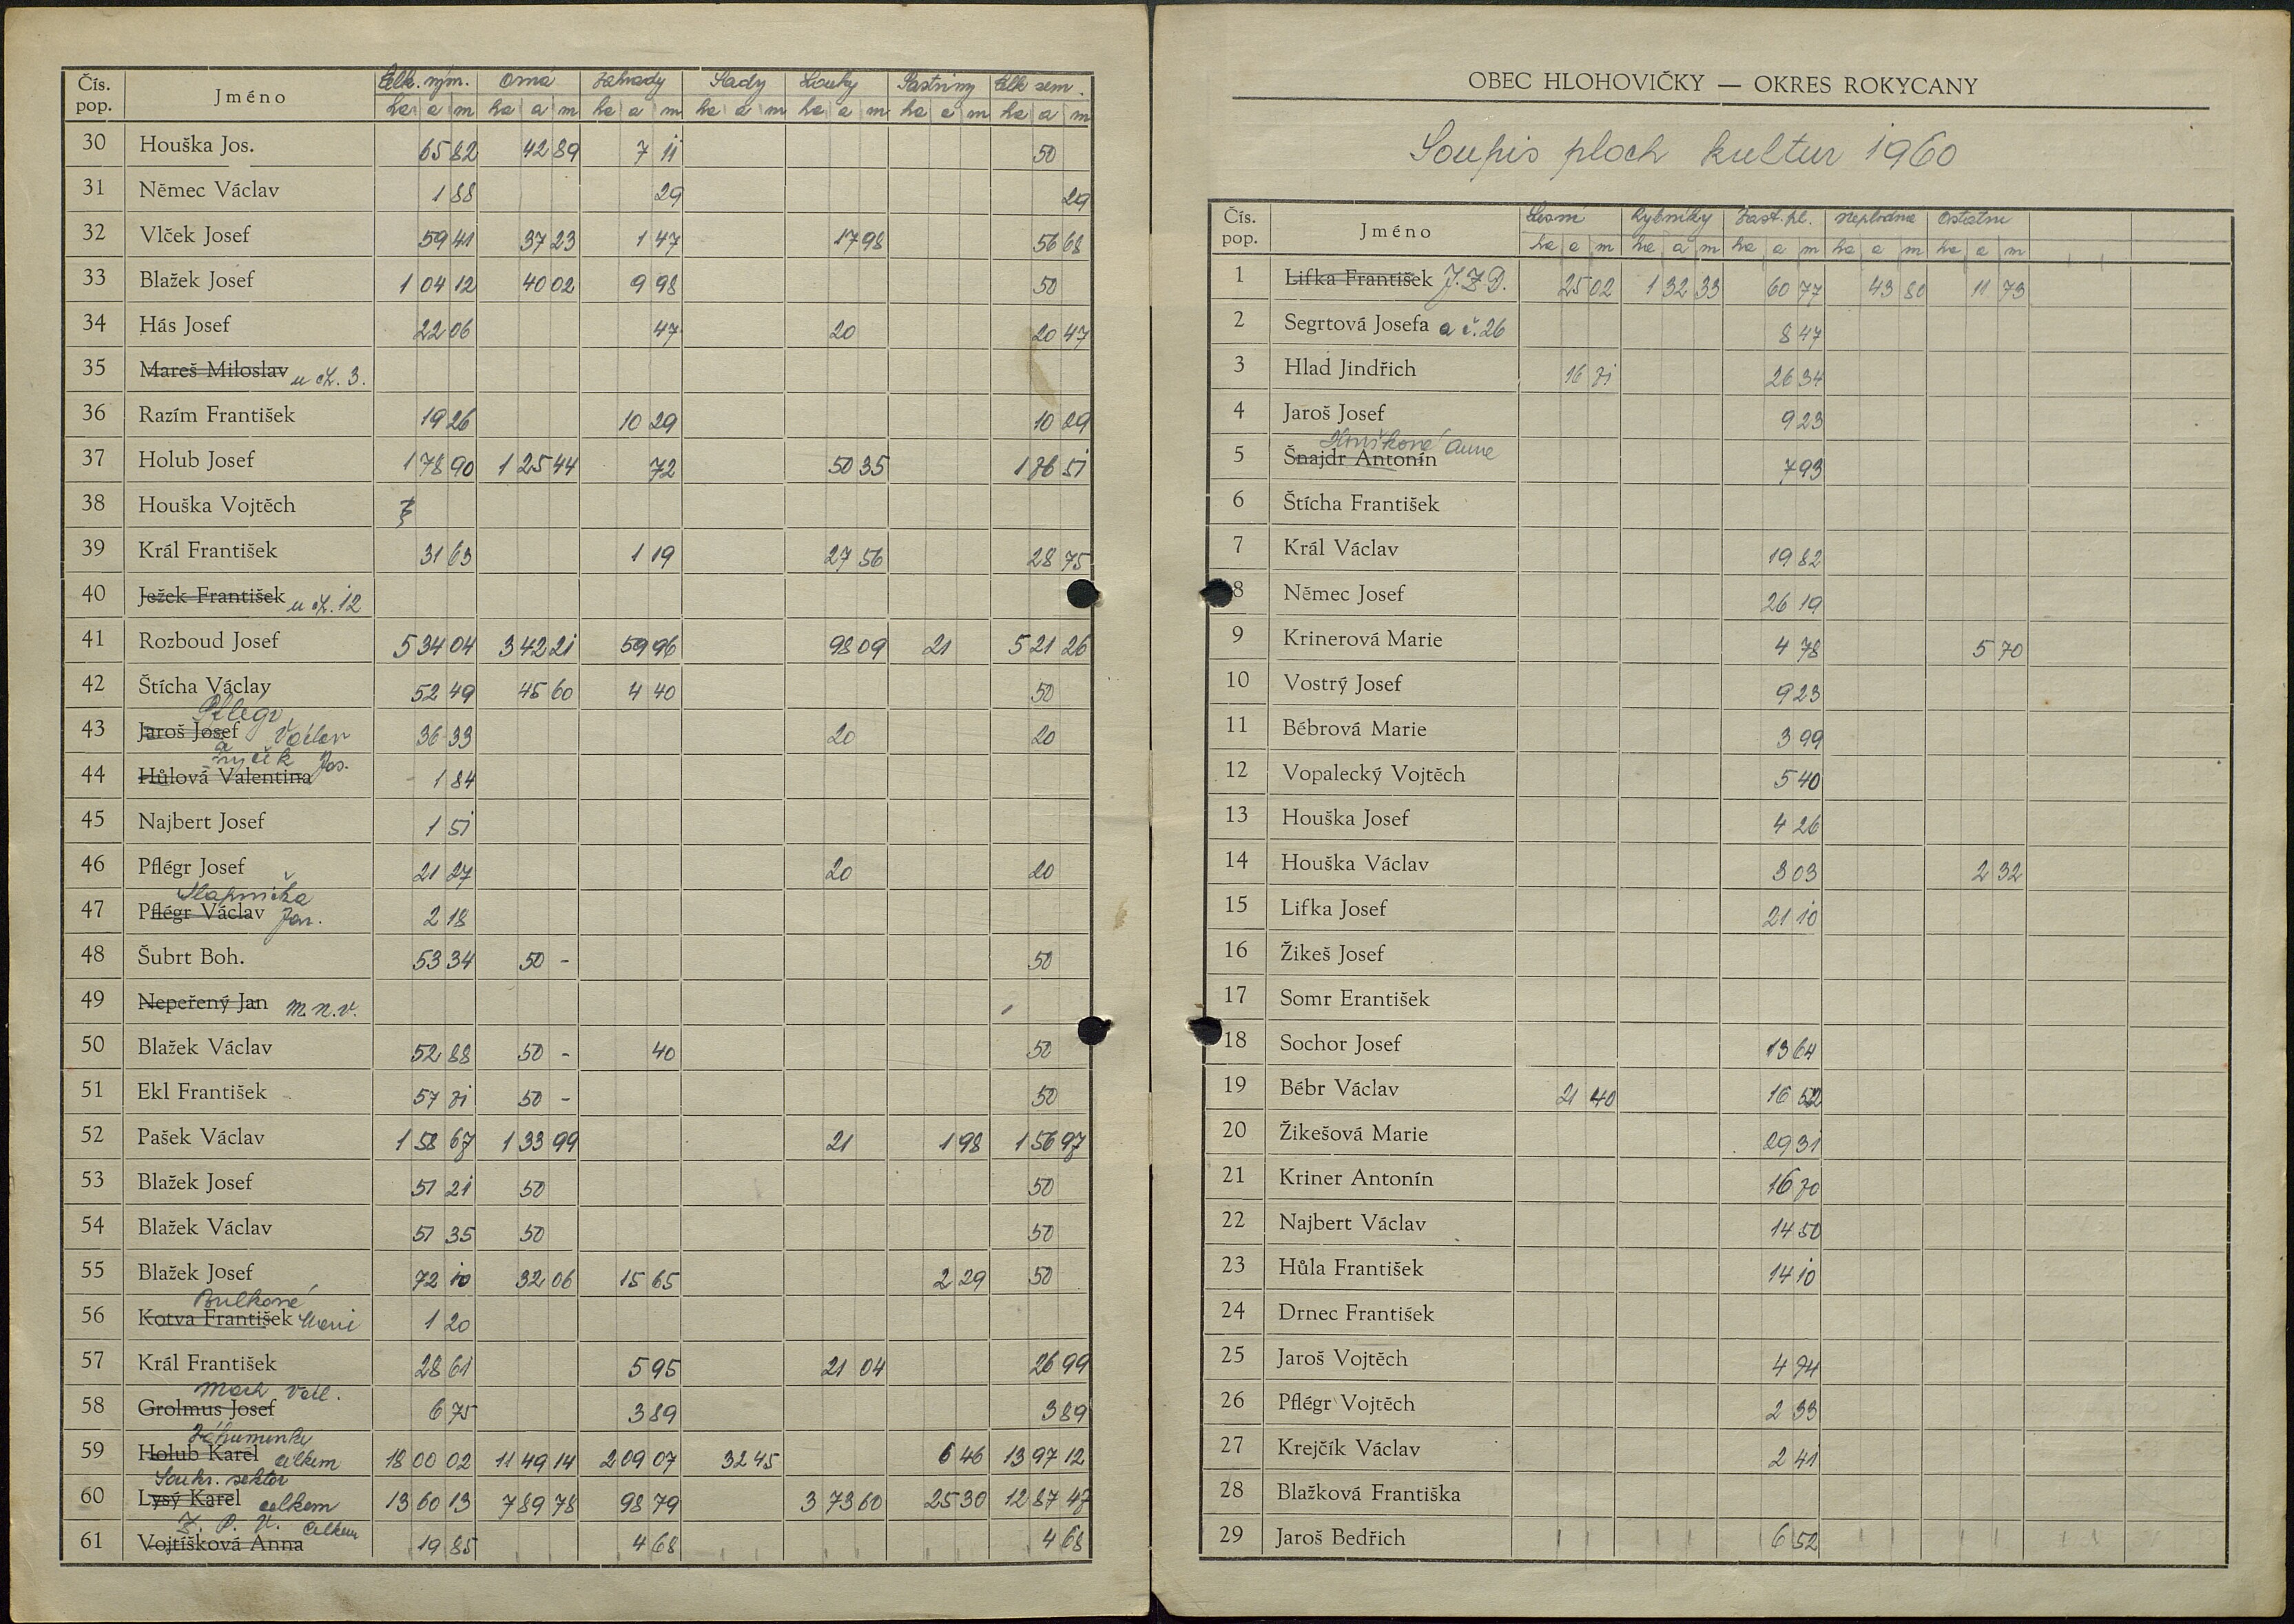 Čís. pop. Jméno Celk. vým. Orná Zahrady Sady Louky Pastviny Celk zem.
ha a m ha a m ha a m ha a m ha a m ha a m ha a m
30 Houška Jos. 65 82 42 89 7 11 50
31 Němec Václav 1 88 29 29
32 Vlček Josef 59 41 37 23 1 47 17 98 56 68
33 Blažek Josef 1 04 12 40 02 9 98 50
34 Hás Josef 22 06 47 20 20 47
35 Mareš Miloslav u čí. 3.
36 Razím František 19 26 10 29 10 29
37 Holub Josef 1 78 90 1 25 44 72 50 35 1 76 51
38 Houška Vojtěch
39 Král František 31 63 1 19 27 56 28 75
40 Ježek František u čí. 12
41 Rozboud Josef 5 34 04 3 42 21 59 96 98 09 21 5 21 26
42 Štícha Václav 52 49 45 60 4 40 50
Pflegr
43 Jaroš Josef Václav 36 33 20 20
a
44 Hůlová Valentina Jos. 1 84
45 Najbert Josef 1 51
46 Pflégr Josef 21 27 20 20
Slapnička
47 Pflégr Václav Jan. 2 18
48 Šubrt Boh. 53 34 50 - 50
49 Nepeřený Jan M.N.V.
50 Blažek Václav 52 88 50 - 40 50
51 Ekl František 57 71 50 - 50
52 Pašek Václav 1 58 67 1 33 99 21 1 98 1 56 97
53 Blažek Josef 51 21 50 50
54 Blažek Václav 51 35 50 50
55 Blažek Josef 72 10 32 06 15 65 2 29 50
Bulková
56 Kotva František Marie 1 20
57 Král František 28 61 5 95 21 04 26 99
Mach Václ.
58 Grolmus Josef 6 75 3 89 3 89
Záhumenky
59 Holub Karel celkem 18 00 02 11 49 14 2 09 07 32 45 6 46 13 97 12
Soukr. sektor
60 Lysý Karel celkem 13 60 13 7 89 78 98 79 3 73 60 25 30 12 87 47
Z. P. V. Celkem
61 Vojtíšková Anna 19 85 4 68 4 68
OBEC HLOHOVIČKY — OKRES ROKYCANY
Soupis ploch kultur 1960
Čís. pop. Jméno Lesní Rybníky Zast. pl. Neplodná Ostatní
ha a m ha a m ha a m ha a m ha a m
1 Lifka František J.Z.D. 25 02 1 32 33 60 77 43 80 11 73
2 Segrtová Josefa a č. 26 8 47
3 Hlad Jindřich 16 71 26 34
4 Jaroš Josef 9 23
Houšková Anna
5 Šnajdr Antonín 7 93
6 Štícha František
7 Král Václav 19 82
8 Němec Josef 26 19
9 Krinerová Marie 4 78 5 70
10 Vostrý Josef 9 23
11 Bébrová Marie 3 99
12 Vopalecký Vojtěch 5 40
13 Houška Josef 4 26
14 Houška Václav 3 03 2 32
15 Lifka Josef 21 10
16 Žikeš Josef
17 Somr Erantišek
18 Sochor Josef 13 64
19 Bébr Václav 21 40 16 52
20 Žikešová Marie 29 31
21 Kriner Antonín 16 70
22 Najbert Václav 14 50
23 Hůla František 14 10
24 Drnec František
25 Jaroš Vojtěch 4 74
26 Pflégr Vojtěch 2 33
27 Krejčík Václav 2 41
28 Blažková Františka
29 Jaroš Bedřich 6 52